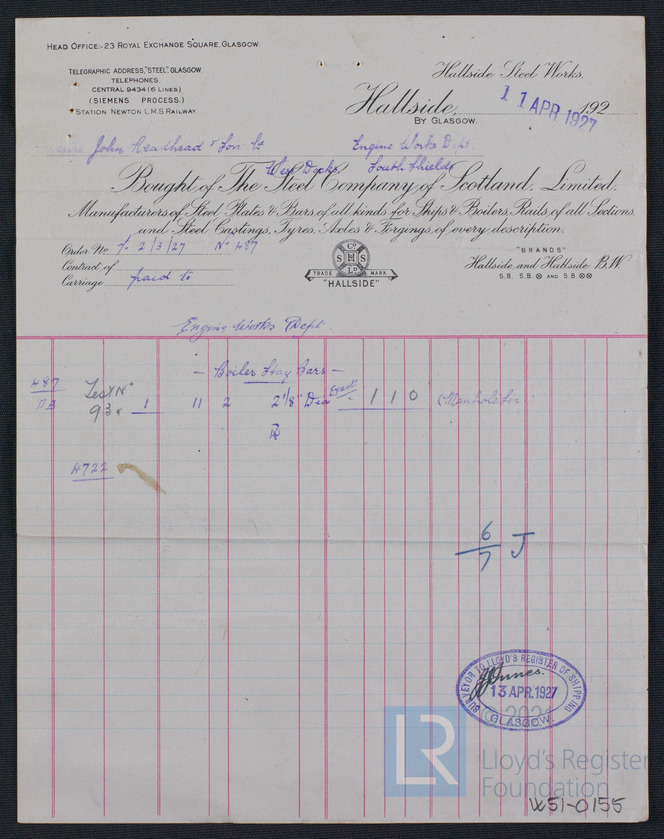 HEAD OFFICE:- 23 ROYAL EXCHANGE SQUARE, GLASGOW.
TELEGRAPHIC ADDRESS, "STEEL", GLASGOW.
TELEPHONES.
CENTRAL 9434 (6 LINES)
(SIEMENS PROCESS.)
STATION NEWTON L.M.S. RAILWAY.
Hallside Steel Works,
Hallside, 192
BY GLASGOW.
11 APR 1927
John Readhead & Son Ld
Engine Works Dept
West Docks, South Shields
Bought of The Steel Company of Scotland, Limited.
Manufacturers of Steel Plates & Bars of all kinds for Ships & Boilers, Rails of all Sections,
and Steel Castings, Tyres, Axles & Forgings of every description.
Order No. 7. 2/3/27 No 487
Contract of
Carriage paid to
S C° H S LD
TRADE MARK
"HALLSIDE"
"BRANDS"
Hallside, and Hallside B.W.
S.B. S.B. AND S.B.
Engine Works Dept.
- Boiler Stay Bars -
487 Test No
93 1 11 2 2 1/8" Dia Exact 1 1 0
4722
6/7 J
SURVEYOR TO LLOYD'S REGISTER OF SHIPPING
J Innes.
13 APR. 1927
GLASGOW.
LR
Lloyd's Register
Foundation
W51-0155